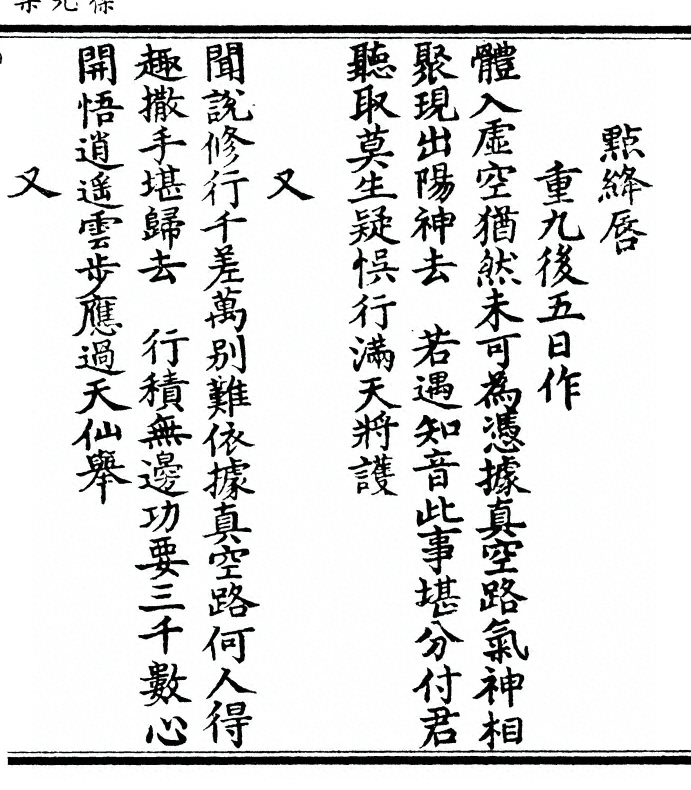 點絳唇
重九後五日作
體入虛空猶然未可為憑據真空路氣神相
聚現出陽神去　若遇知音此事堪分付君
聽取莫生疑悞行滿天將護
又
聞說修行千差萬别難依據真空路何人得
趣撒手堪歸去　行積無邊功要三千數心
開悟逍遥雲步應過天仙舉
又